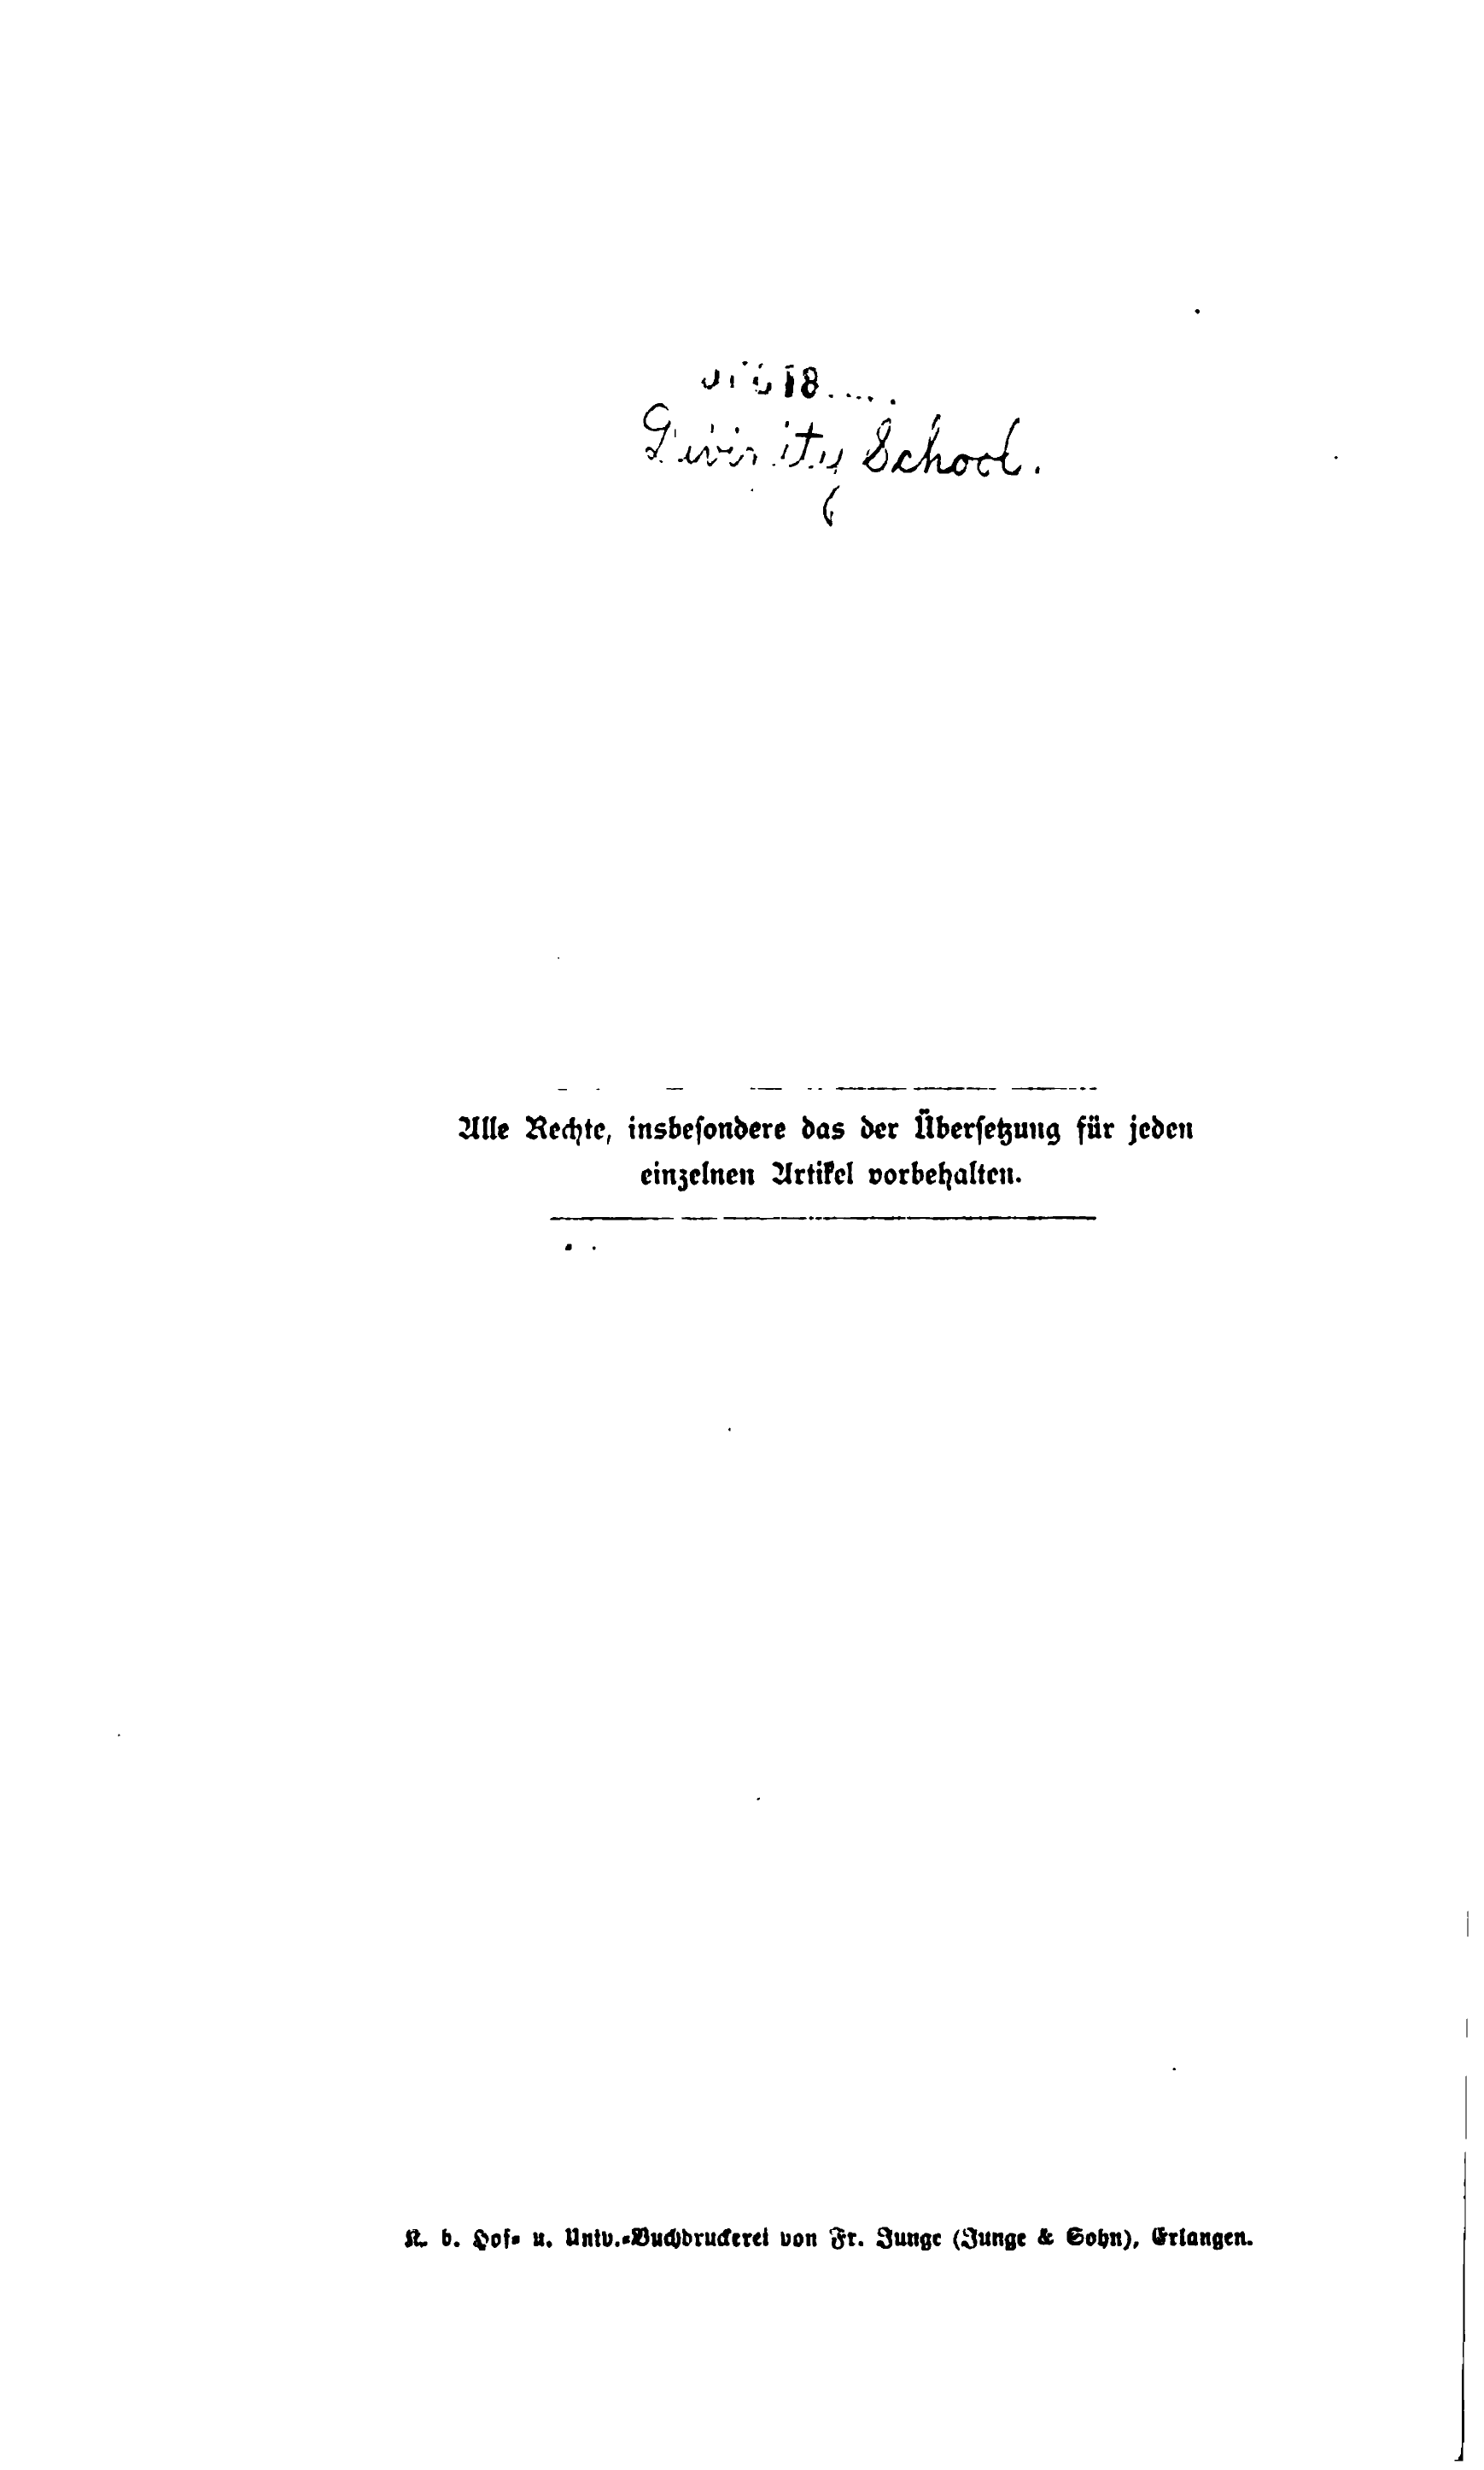 18
Divinity School.
Alle Rechte, insbesondere das der Übersetzung für jeden
einzelnen Artikel vorbehalten.
K. b. Hof- u. Univ.-Buchdruckerei von Fr. Junge (Junge & Sohn), Erlangen.